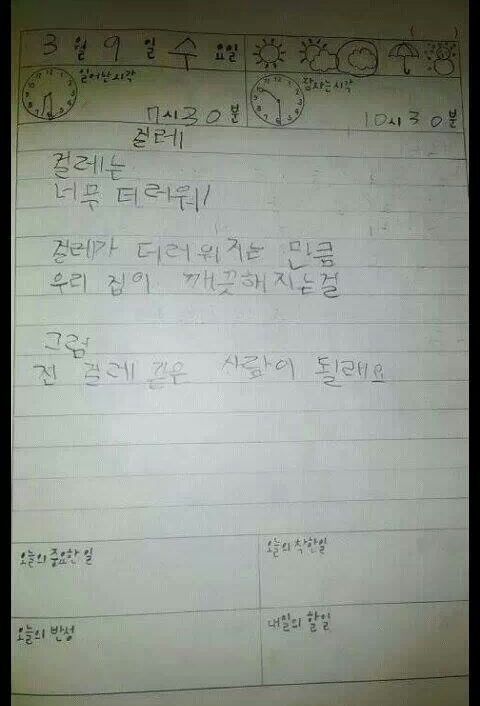 ( )
3월 9일 수요일
일어난시각
7시30분
잠자는시각
10시30분
걸레
걸레는
너무 더러워!
걸레가 더러워지는 만큼
우리 집이 깨끗해지는걸
그럼
전 걸레 같은 사람이 될래요
오늘의 중요한 일
오늘의 착한일
오늘의 반성
내일의 할일